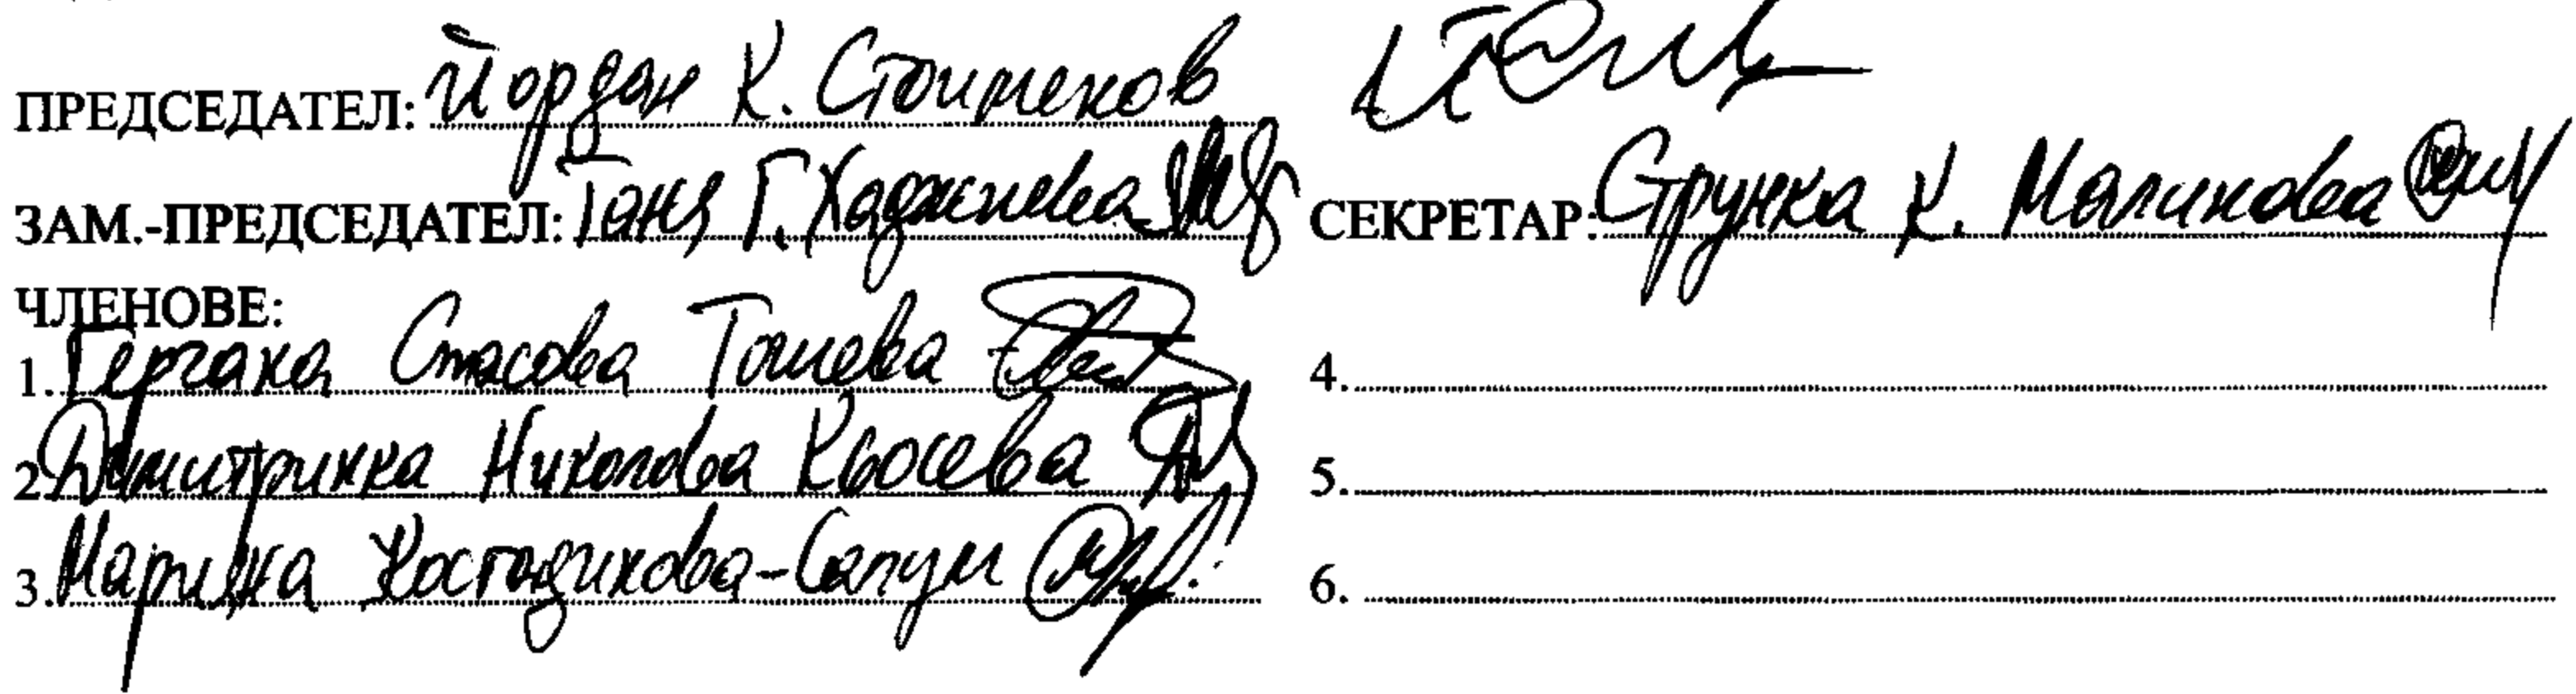 ПРЕДСЕДАТЕЛ: Йордан К. Стоименов
ЗАМ.-ПРЕДСЕДАТЕЛ: Таня Г. Хаджиева СЕКРЕТАР: Струнка К. Малинова
ЧЛЕНОВЕ:
1. Гергана Стасова Тошева 4.
2. Димитринка Николова Кьосева 5.
3. Марийка Костадинова-Сапун 6.